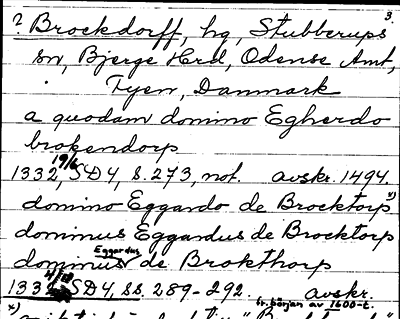 3.
? Brockdorff, hg, Stubberups
sn, Bjerge Hrd, Odense Amt,
Fyen, Danmark
a quodam domino Egherdo
brokendorp
19/6
1332, SD4, s. 273, not. avskr. 1494.
domino Eggardo de Brocktorp x)
dominus Eggardus de Brocktorp
Eggardus
dominus de Brokthorp
1332 SD4, ss. 289-292. avskr.
fr. början av 1600-t.
x)